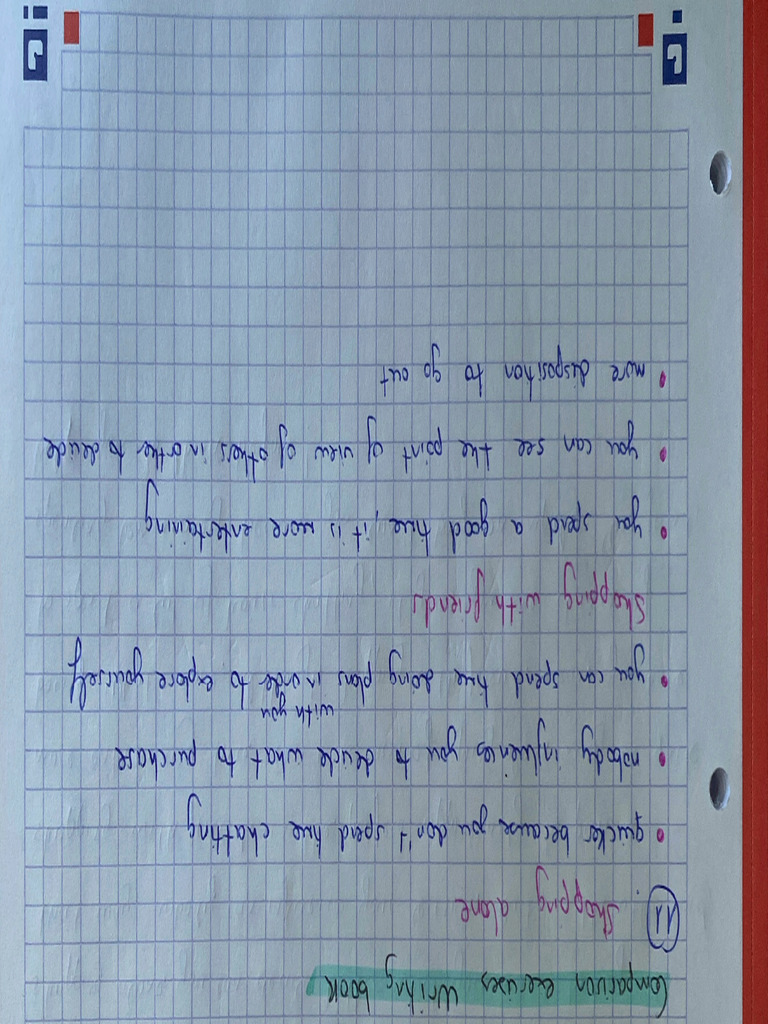 Comparison exercises writing book
11. Shopping alone
• quicker because you don't spend time chatting
• nobody influences you to decide what to purchase
with you
• you can spend time doing plans in order to explore yourself
Shopping with friends
• you spend a good time, it is more entertaining
• you can see the point of view of others in other to decide
• more disposition to go out